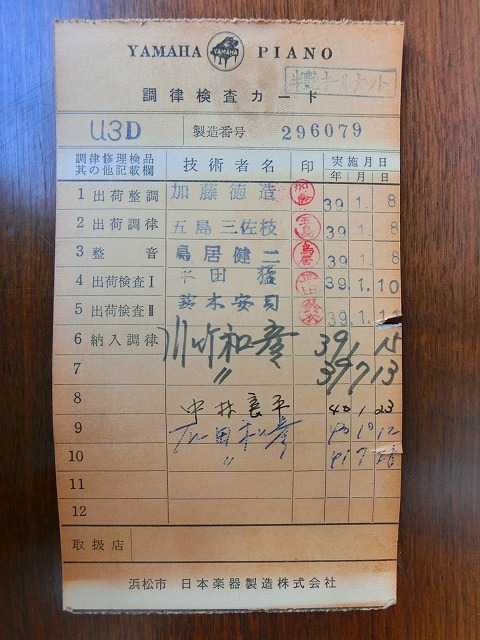 YAMAHA PIANO
YAMAHA
調律検査カード
U3D 製造番号 296079
調律修理検品 其の他記載欄 技術者名 印 実施月日
年 月 日
1 出荷整調 加藤徳造 加藤 39 1. 8
2 出荷調律 五島三佐枝 五島 39. 1. 8
3 整音 鳥居健二 鳥居 39. 1. 8
4 出荷検査I 平田 猛 39. 1. 10
5 出荷検査II 鈴木安司 鈴木 39. 1. 1
6 納入調律 川竹和彦 39 1 15
7 〃 39 7 13
8 中林良平 40 1 23
9 40 10 12
10 〃 41 7
11
12
取扱店
浜松市 日本楽器製造株式会社